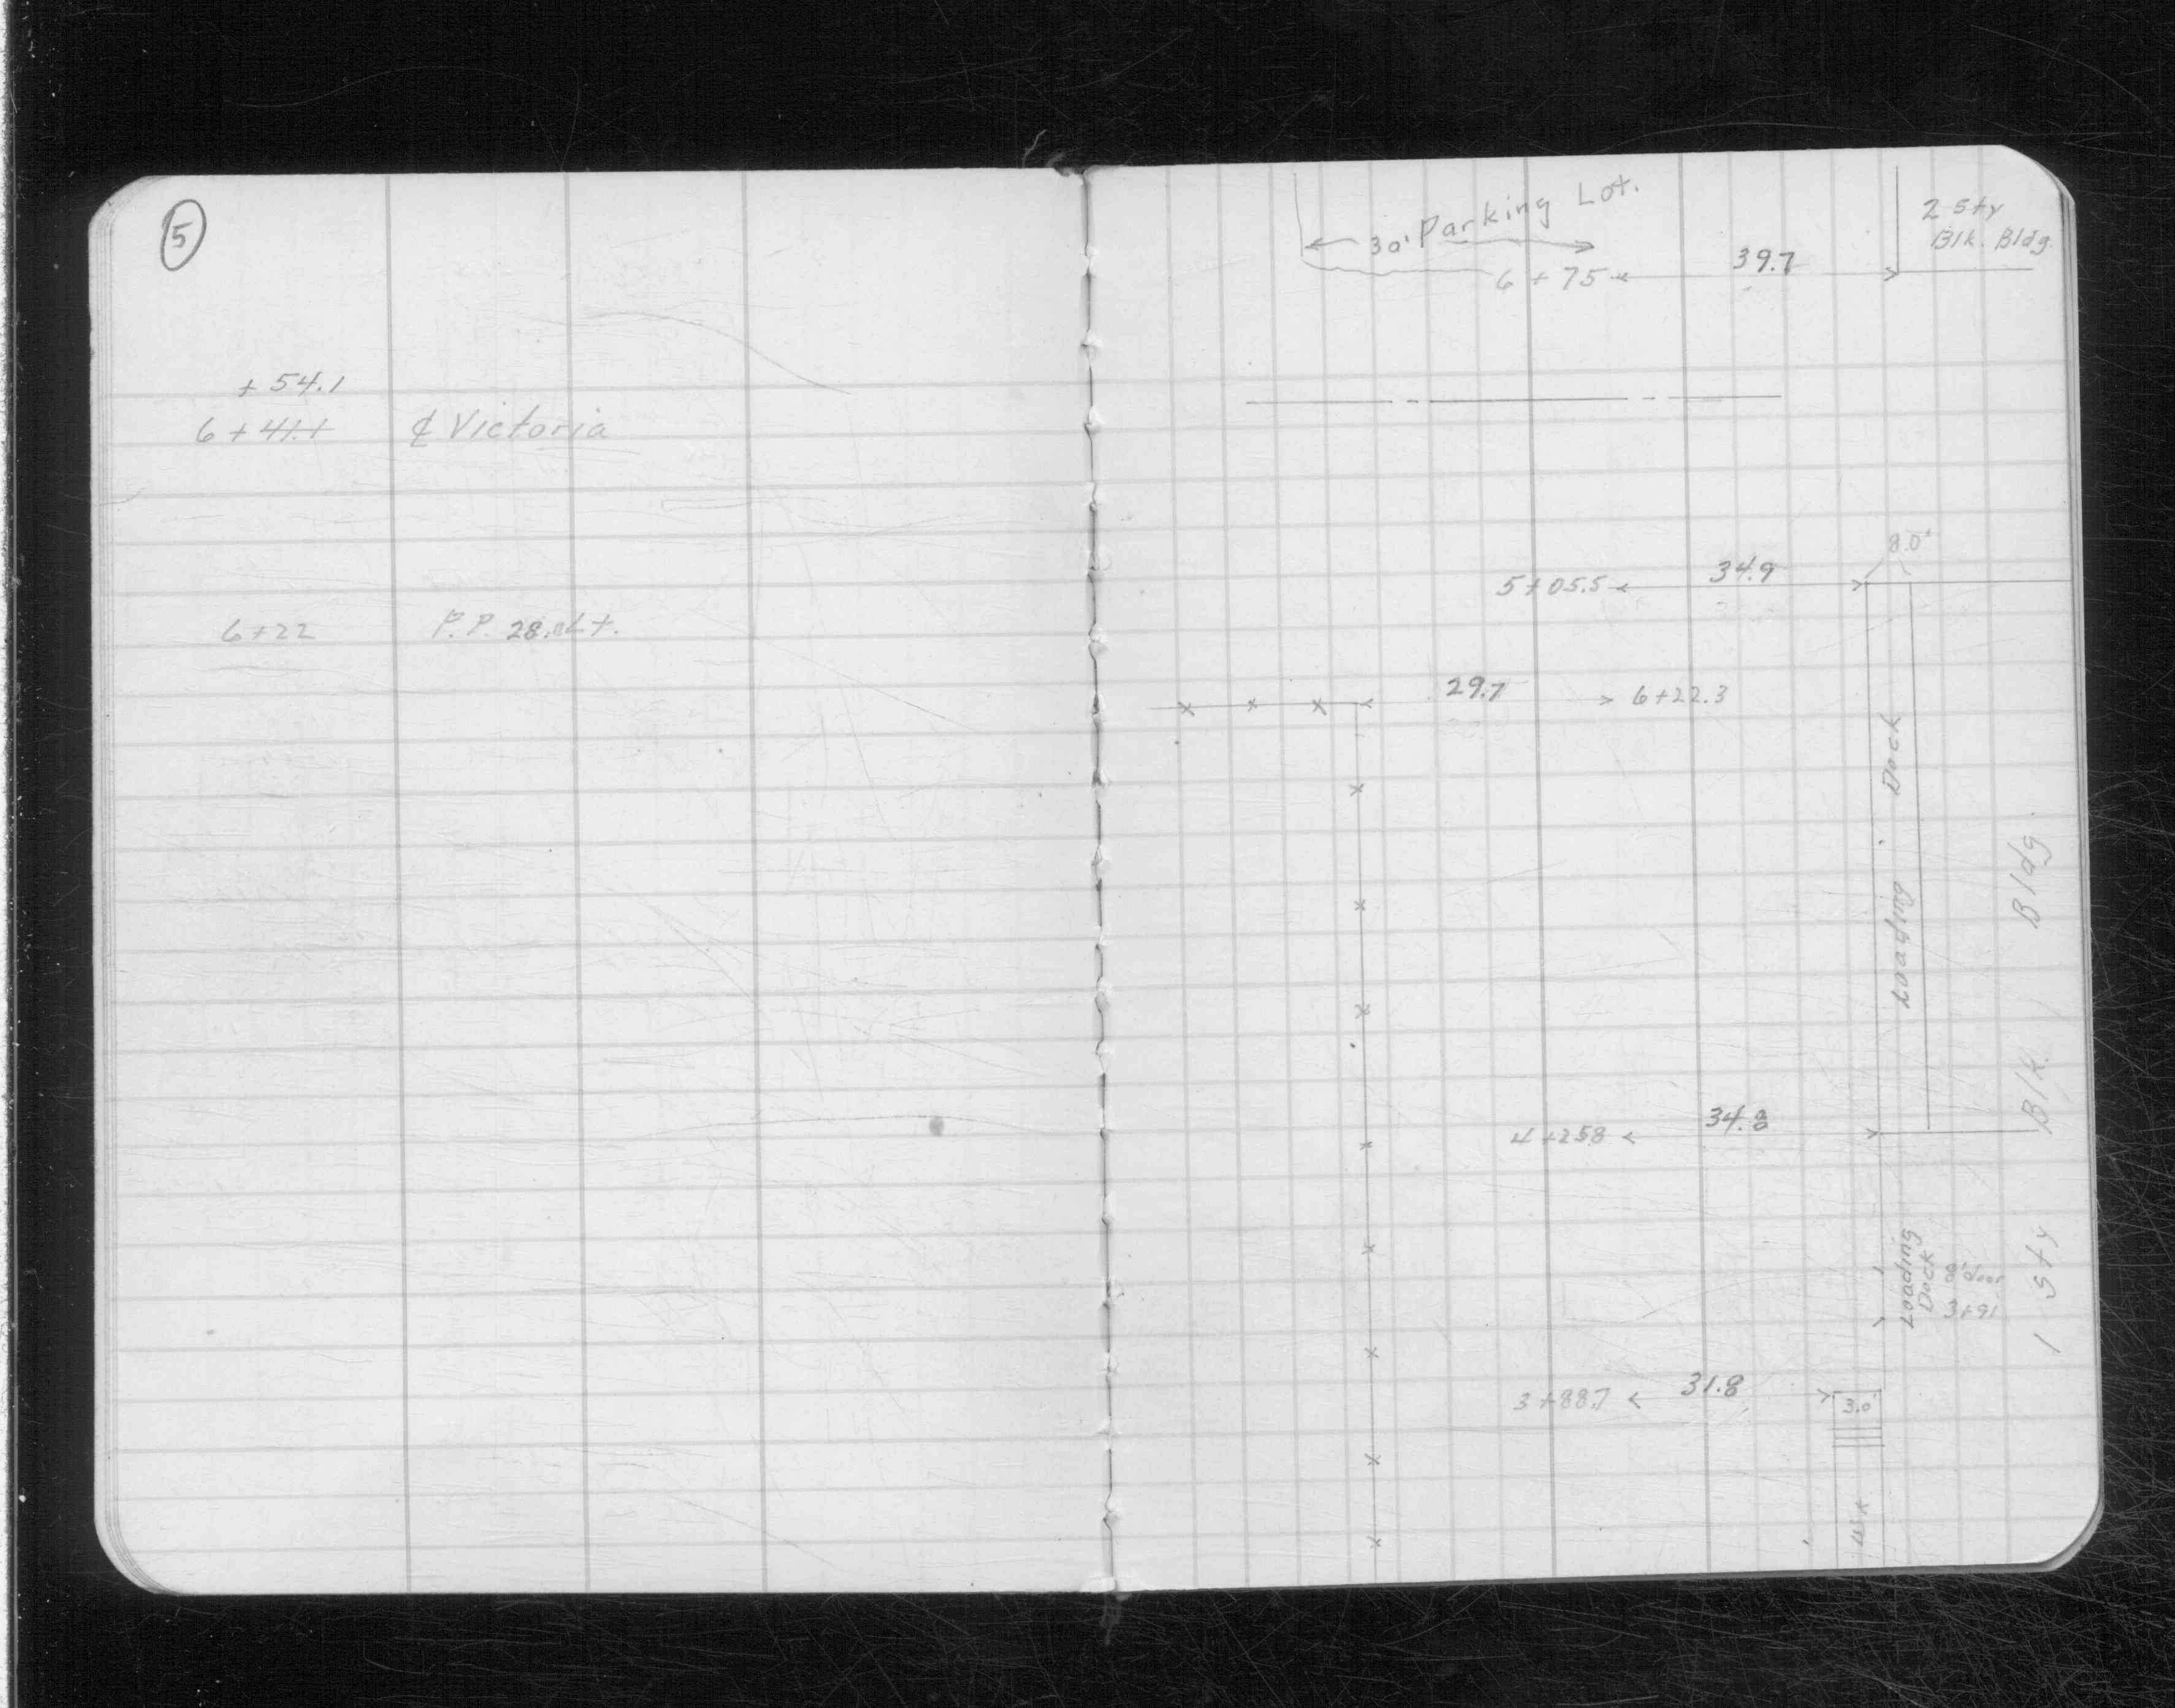 5
+ 54.1
6 + 41.1
₵ Victoria
6+22
P.P. 28. Lt.
Parking Lot.
30'
6 + 75
39.7
2 Sty
Blk. Bldg.
8.0'
5+05.5
34.9
29.7
6+22.3
Loading Dock
1 Sty Blk. Bldg.
4+258
34.8
Loading
Dock
8' door
3+91
3+88.7
31.8
3.0'
Wk